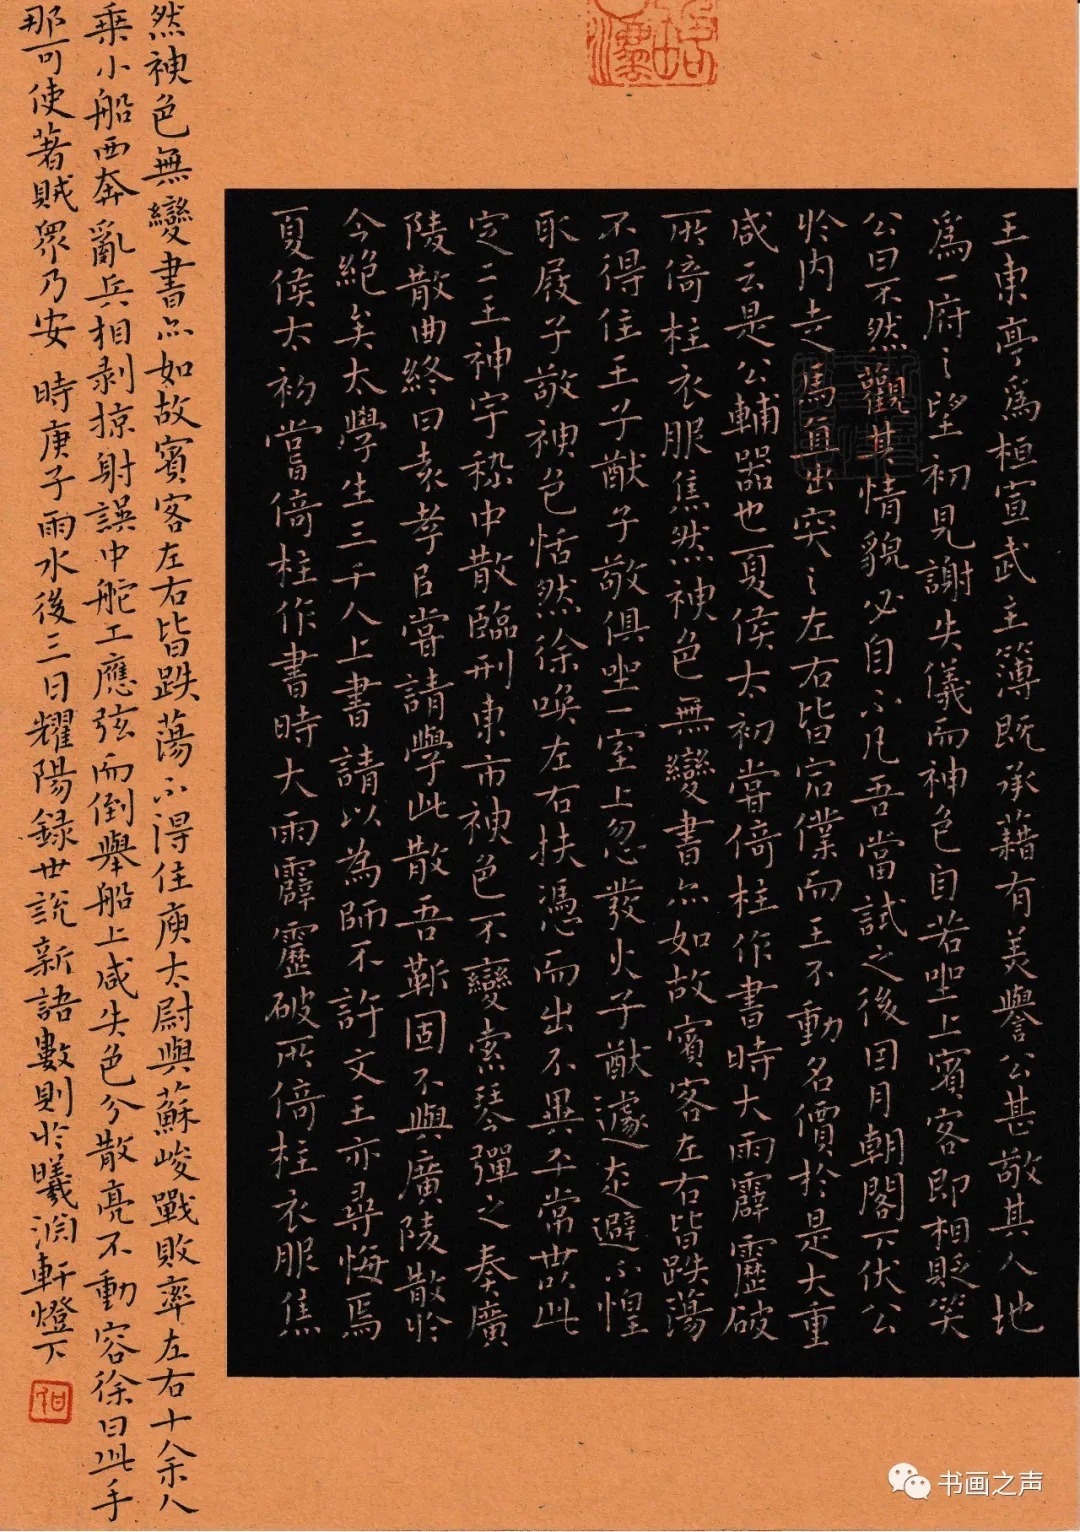 王東亭爲桓宣武主簿既承藉有美譽公甚敬其人地
爲一府之望初見謝失儀而神色自若坐上賓客即相貶笑
公曰不然觀其情貌必自不凡吾當試之後因月朝閣下伏公
於內走馬直出突之左右皆宕僕而王不動名價於是大重
咸云是公輔器也夏侯太初嘗倚柱作書時大雨霹靂破
所倚柱衣服焦然神色無變書亦如故賓客左右皆跌蕩
不得住王子猷子敬俱坐一室上忽發火子猷遽走避不惶
取屐子敬神色恬然徐喚左右扶憑而出不異平常世以此
定二王神宇嵇中散臨刑東市神色不變索琴彈之奏廣
陵散曲終曰袁孝尼嘗請學此散吾靳固不與廣陵散於
今絕矣太學生三千人上書請以為師不許文王亦尋悔焉
夏侯太初嘗倚柱作書時大雨霹靂破所倚柱衣服焦
然神色無變書亦如故賓客左右皆跌蕩不得住庾太尉與蘇峻戰敗率左右十余人
乘小船西奔亂兵相剥掠射誤中舵工應弦而倒舉船上咸失色分散亮不動容徐曰此手
那可使著賊眾乃安 時庚子雨水後三日耀陽録世說新語數則於曦渊軒燈下
书画之声